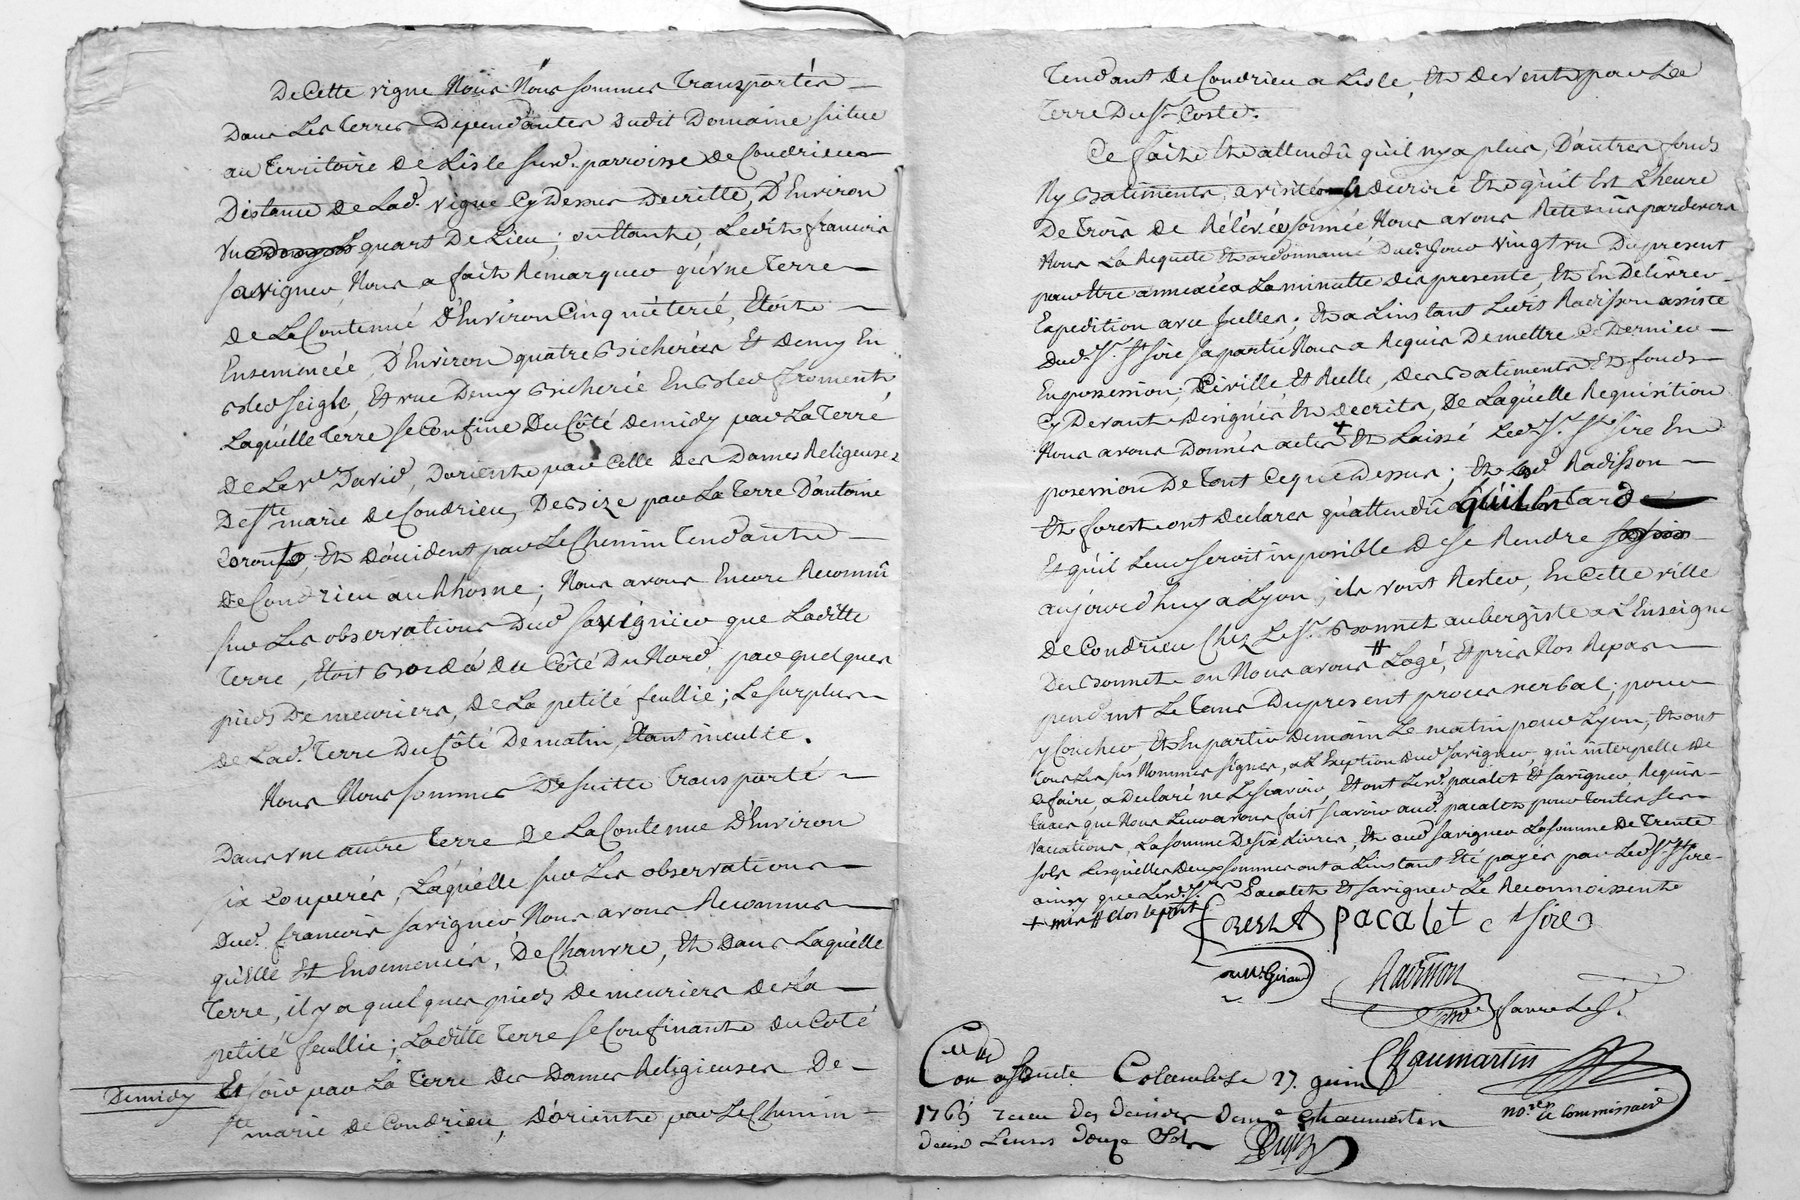 De Cette vigne Nous Nous sommes Transportés
Dans Les Terres Dépendantes Dudit Domaine situé
au Territoire De Lisle sur.d parroisse De Condrieu
Distance De Lad. vigne Cy Dessus Décritte, D'Environ
vn quart De Lieu; suittant, Ledit francois
Savigner, Nous a fait Remarquer qu'vne Terre
De La Contenue D'Environ Cinq méterié, Etoit
Ensemencée, D'Environ quatre Bicherées Et Demy En
Bled seigle, Et vne Demy Bicherié En Bled froment
Laquelle Terre se Confine Du Côté Demidy par La Terre
De Le Sr. David, Dorient par Celle Des Dames Religieuses
De Ste. marie De Condrieu, De Bize par La Terre D'antoine
Et D'occident par Le Chemin Tendant
De Condrieu au Rhosne; Nous avons Encore Reconnû
sur Les observations Dud. Savignier que Laditte
Terre, Etoit Bordéé du Côté Du Nord, par quelques
pieds De meuriers, De La petite feullie; Le surplus
De Lad. Terre Du Côté De matin, Etant inculte.
Nous Nous sommes De suitte Transporté
Dans vne autre Terre De La Contenue D'Environ
six Couperés, Laquelle sur Les observations
Dud. francois Savigner Nous avons Reconnus
qu'elle Est Ensemencée, De Chanvre, Et Dans Laquelle
Terre, il y a quelques pieds De meuriers De La
petite feullie; Laditte Terre se Confinant Du Coté
Demidy Et soir par La Terre Des Dames Religieuses De
Ste. marie De Condrieu, D'orient par Le Chemin
Tendant De Condrieu a Lisle, Et De vent par La
Terre Du Sr. Coste.
Ce fait Et attendû qu'il n'y a plus, D'autres fonds
Ny Batiments, a visiter Décrire Et qu'il Est L'heure
De Trois De Rélevée sonnée Nous avons Retenûs pardevers
Nous La Requete Et ordonnance Dud. Jour vingt vn Du present
pour Etre annexéé a La minutte Des presente, Et En Délivrer
Expedition avec Jcelles; Et a Linstant Ledit Radisson assisté
Dud. Sr. St. Sire sa partie Nous a Requis De mettre Ce Dernier
En possession; Civille Et Réelle, Des Batiments Et fonds
Cy Devant Designés Et Decrits, De Laquelle Requisition
Nous avons Donnés actes + Et Laissé Led. Sr. St. Sire En
possession De Tout Ce que Dessus; Et Led. Radisson
Et forest ont Declarés qu'attendû quil Est Tard
Et qu'il Leur seroit inpossible De se Rendre
aujourd'huy a Lyon, ils vont Rester, En Cette ville
De Condrieu Chez Le Sr. Bonnet aubergiste a L'Enseigne
Du Bonnet ou Nous avons # Logé, Et pris Nos Repas
pendant Le Tems Du present proces verbal, pour
y Coucher Et En partir Demain Le matin pour Lyon, Et ont
Tous Les sus Nommés signés, a L'Exeption Dud. Savigner, qui interpellé De
Ce faire, a Declaré ne Le scavoir, Et ont Lesd. pacalet Et Savigner Requis
Taxes que Nous Leur avons fait scavoir aud. pacalet pour Toutes ses
vacations, La somme De six Livres, Et aud. Savigner La somme De Trente
sols Lesquelles Deux sommes ont a Linstant Eté payés par Led. Sr. St. Sire
ainsy que Lesd. Srs. Pacalet Et Savigner Le Reconnoissent
+ mis # clos le pnt
forest pacalet St Sire
Giraud
Radisson
favre
Chaumartin
no.re Commissaire
Con Colombe 27. juin
1765 recu Des Chaumartin
deux Livres douze Sols